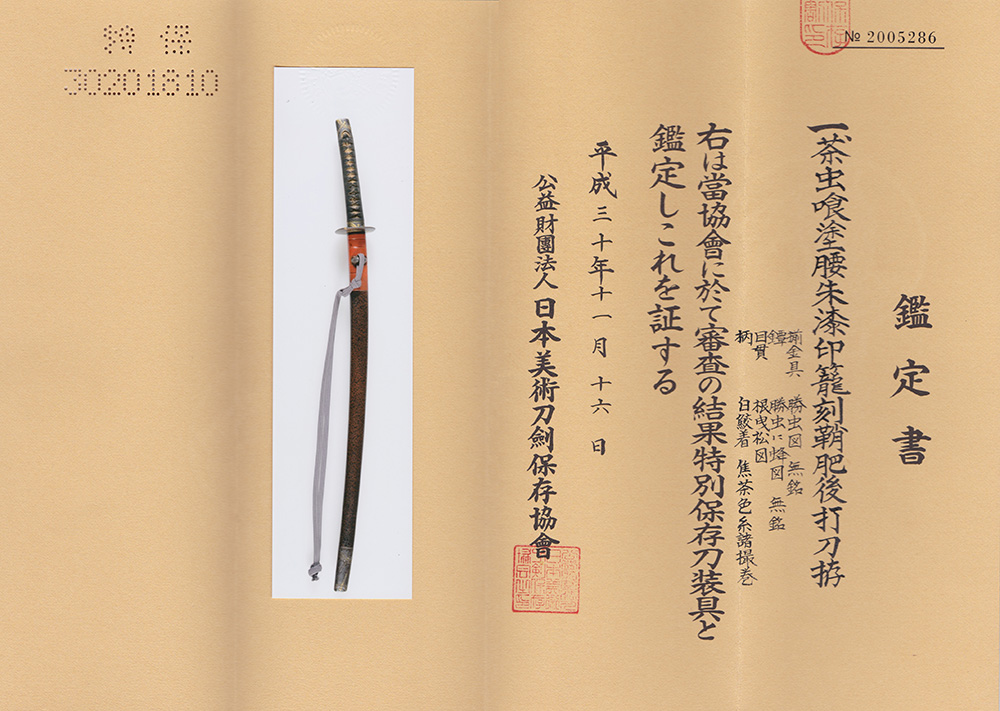 № 2005286
鑑定書
一、茶虫喰塗腰朱漆印籠刻鞘肥後打刀拵
揃金具 勝虫図 無銘
鐔 勝虫に蜂図 無銘
目貫 根曳松図
柄 白鮫着 焦茶色糸諸撮巻
右は當協會に於て審査の結果特別保存刀装具と
鑑定しこれを証する
平成三十年十一月十六日
公益財團法人 日本美術刀劍保存協會
特保
30201810